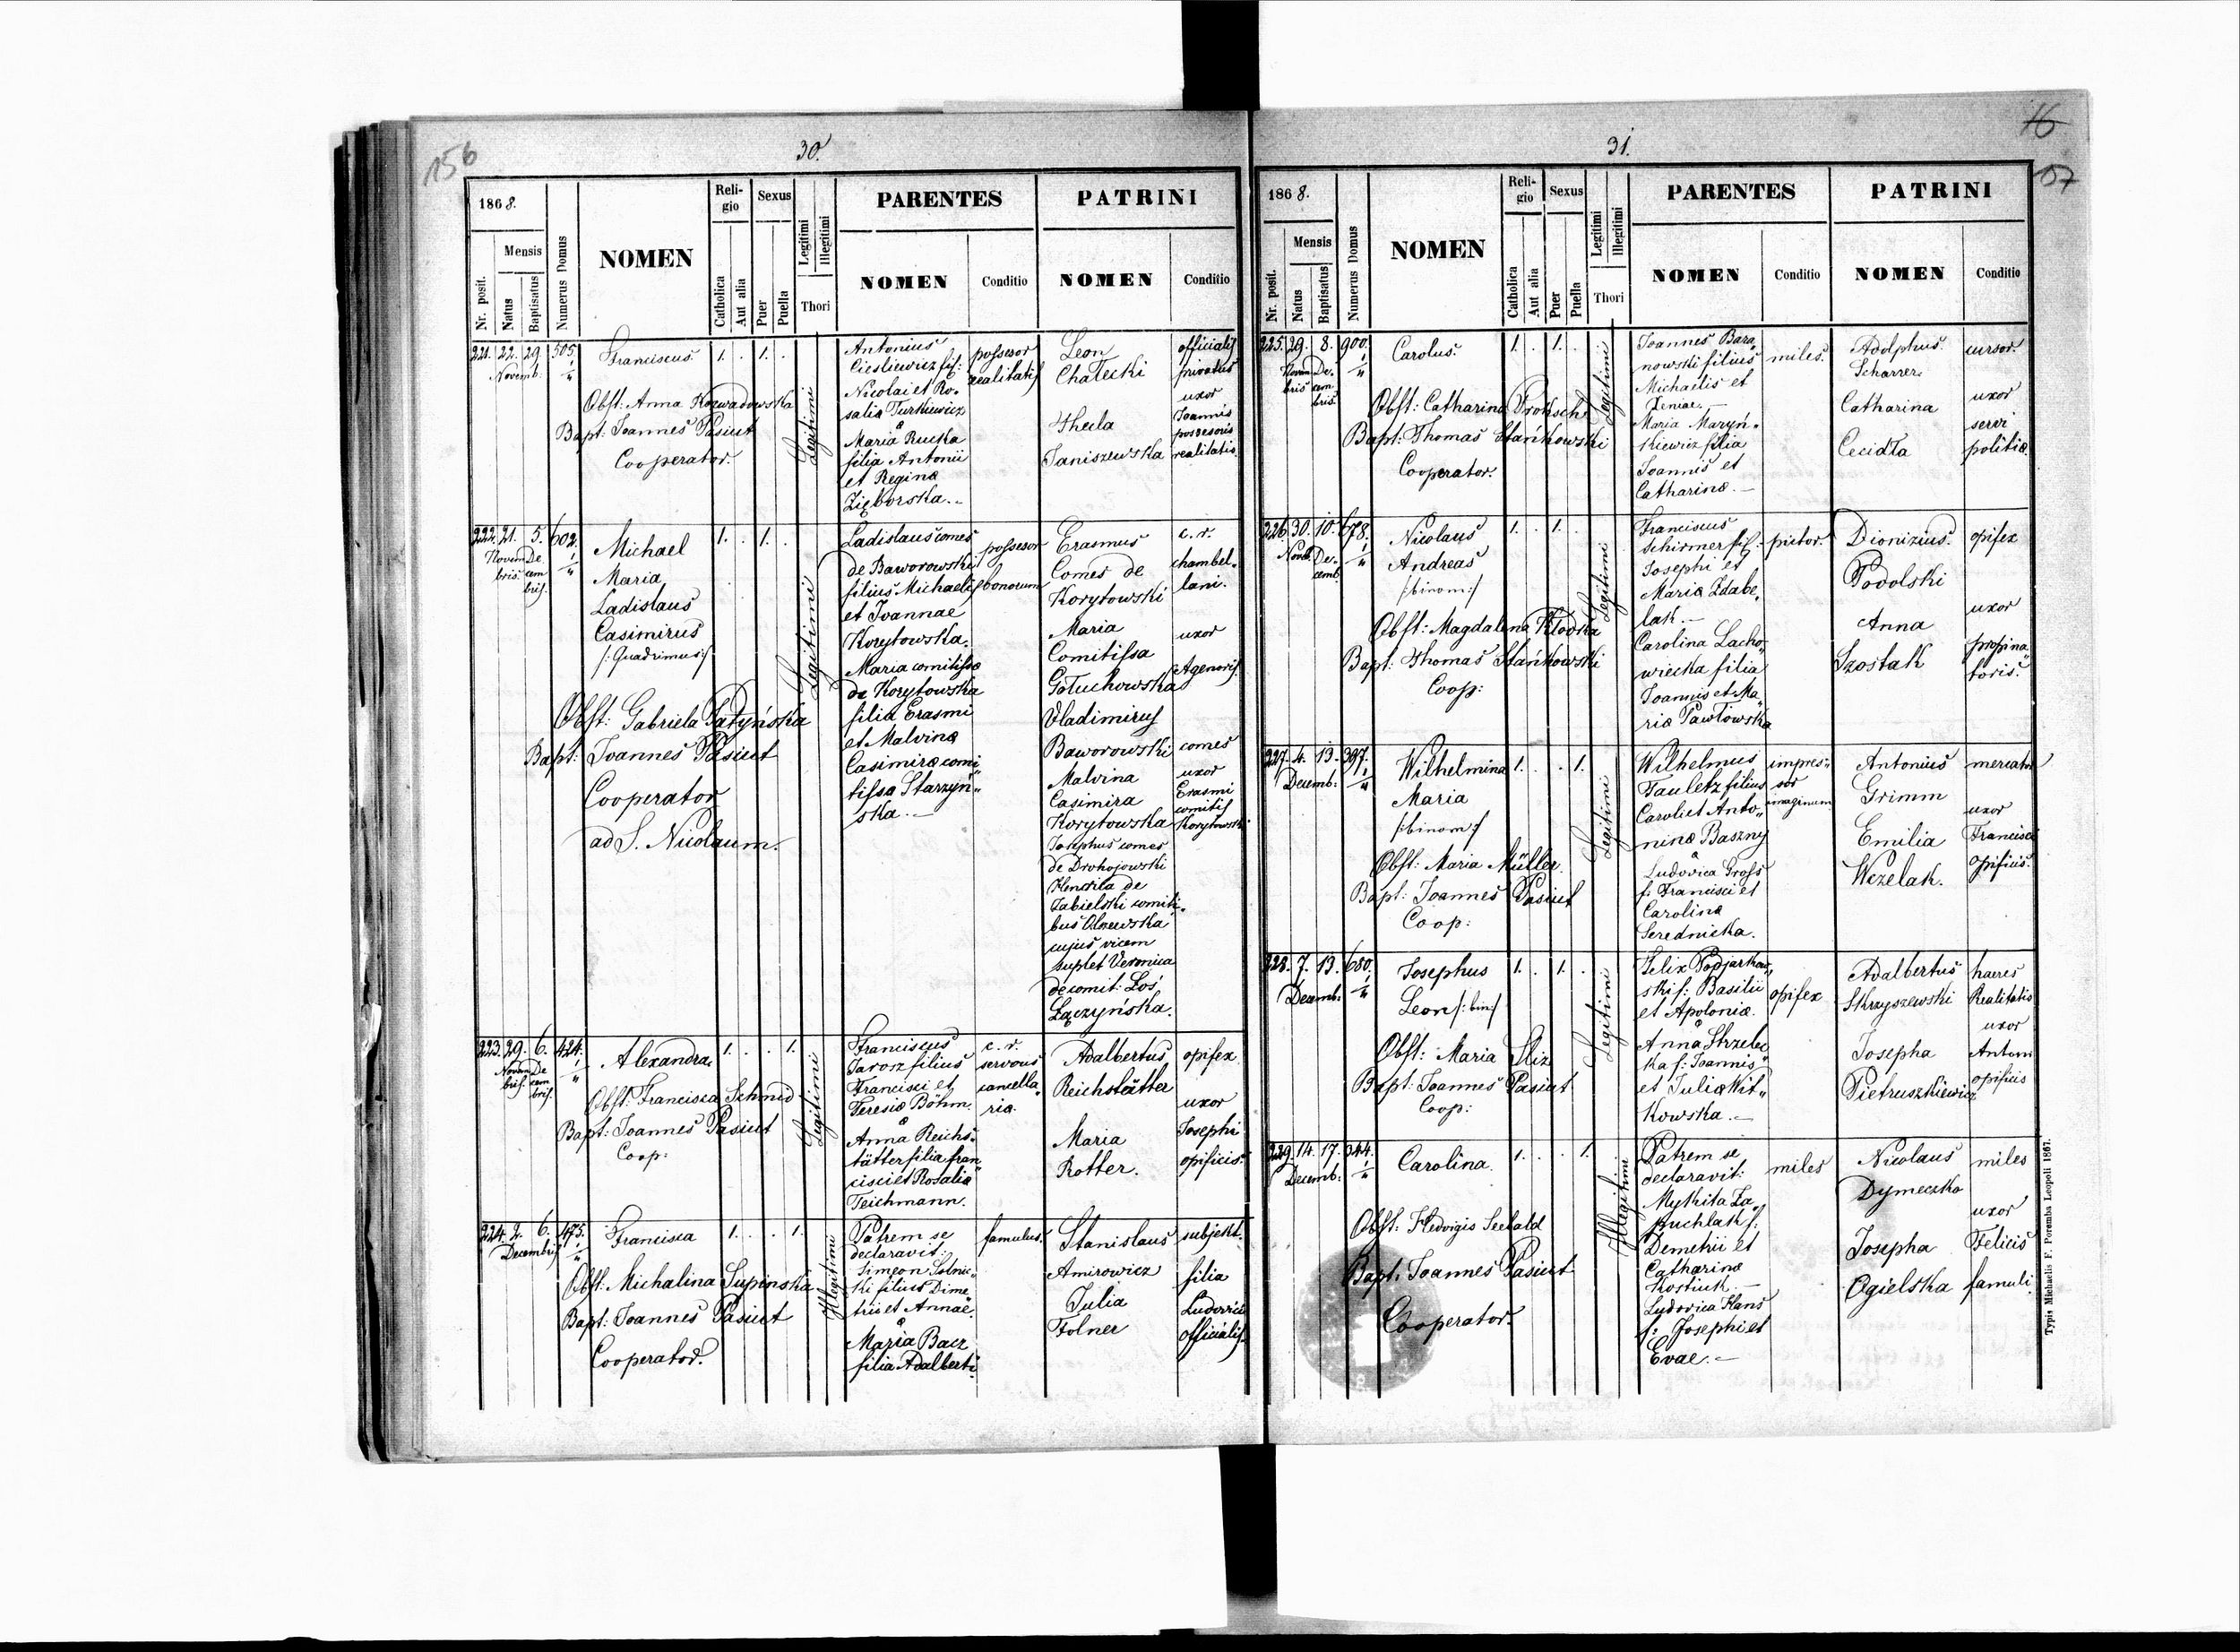 156
30.
1868.
Nr. posit.
Mensis
Natus
Baptisatus
Numerus Domus
NOMEN
Reli-
gio
Catholica
Aut alia
Sexus
Puer
Puella
Legitimi
Illegitimi
Thori
PARENTES
NOMEN
Conditio
PATRINI
NOMEN
Conditio
221. 22. 29. 505.
Novemb.
Franciscus
1. . 1. .
Obst: Anna Rozwadowska
Bapt: Joannes Pasiut
Cooperator.
Legitimi
Antonius
Ciesliewicz fil:
Nicolai et Ro-
salia Turkiewicz
&
Maria Rucka
filia Antonii
et Regina
Zięborska.
possesor
realitatis
Leon
Chałecki
Thecla
Janiszewska
officialis
privatus
uxor
Joannis
possesoris
realitatis.
222. 21. 5. 602.
Novem De
bris. cem
bris.
Michael
Maria
Ladislaus
Casimirus
/: Quadrimus :/
1. . 1. .
Obst: Gabriela Patyńska
Bapt: Joannes Pasiut
Cooperator
ad S. Nicolaum.
Legitimi
Ladislaus comes
de Baworowski
filius Michaelis
et Joannae
Korytowska.
Maria comitissa
de Korytowska
filia Erasmi
et Malvina
Casimira comi
tissa Starzyń
ska.
possesor
bonorum
Erasmus
Comes de
Korytowski
Maria
Comitissa
Gołuchowska
Vladimirus
Baworowski
Malvina
Casimira
Korytowska
Josephus comes
de Drohojowski
de
Zabielski comiti-
bus Olszewska
cujus vicem
suplet Veronica
de comit: Łoś
Łączyńska.
c. r.
chambel-
lani.
uxor
Agenoris
comes
uxor
Erasmi
comitis
Korytowski
223. 29. 6. 424.
Novem De
bris. cem
bris.
Alexandra
1. . . 1.
Obst: Francisca Schmid
Bapt: Joannes Pasiut
Coop:
Legitimi
Franciscus
Jarosz filius
Francisci et
Teresia Böhm.
&
Anna Reichs-
tätter filia Fran
cisci et Rosalia
Teichmann.
c. r.
servous
cancella
ria.
Adalbertus
Reichstätter
Maria
Rotter.
opifex
uxor
Josephi
opificis.
224. 2. 6. 475.
Decembris
Francisca
1. . . 1.
Obst: Michalina Supinska
Bapt: Joannes Pasiut
Cooperator.
Illegitimi
Patrem se
declaravit:
Simeon Solnic
ki filius Dime
trii et Annae.
&
Maria Bacz
filia Adalberti.
famulus.
Stanislaus
Amirowicz
Julia
Folner
subjekt.
filia
Ludovici
officialis.
16
157
31.
1868.
Nr. posit.
Mensis
Natus
Baptisatus
Numerus Domus
NOMEN
Reli-
gio
Catholica
Aut alia
Sexus
Puer
Puella
Legitimi
Illegitimi
Thori
PARENTES
NOMEN
Conditio
PATRINI
NOMEN
Conditio
225. 29. 8. 900.
Novem De-
bris cem
bris.
Carolus.
1. . 1. .
Obst: Catharina Proksch
Bapt: Thomas Stańkowski
Cooperator.
Legitimi
Joannes Bara
nowski filius
Michaelis et
Xeniae.
Maria Maryń
kiewicz filia
Joannis et
Catharina.
miles.
Adolphus
Scharrer.
Catharina
Cecidła
cursor.
uxor
servi
politia.
226. 30. 10. 678.
Novem De-
cemb.
Nicolaus
Andreas
/: binom :/
1. . 1. .
Obst: Magdalena Kłodska
Bapt: Thomas Stańkowski
Coop:
Legitimi
Franciscus
Schirmer fil:
Josephi et
Maria Zdabe,
lak.
Carolina Lacho,
wiecka filia
Joannis et Ma
ria Pawłowska
pictor.
Dionizius.
Podolski
Anna
Szostak
opifex
uxor
propina
toris.
227. 4. 13. 397.
Decemb:
Wilhelmina
Maria
/: binom :/
1. . . 1.
Obst: Maria Müller
Bapt: Joannes Pasiut
Coop:
Legitimi
Wilhelmus
Tauletz filius
Caroli et Anto
nina Baszny
&
Ludovica Gross
f: Francisci et
Carolina
Serednicka.
impres-
sor
imaginum
Antonius
Grimm
Emilia
Wczelak.
mercator
uxor
Francisci
opificis.
228. 7. 13. 680.
Decemb:
Josephus
Leon /: bin :/
1. . 1. .
Obst: Maria Sliz
Bapt: Joannes Pasiut
Coop:
Legitimi
Felix Podjarkow
ski f: Basilii
et Apolonia.
&
Anna Strzelec
ka f: Joannis
et Julia Wit
kowska.
opifex
Adalbertus
Skrzyszewski
Josepha
Pietruszkiewicz
haeres
Realitatis
uxor
Antoni
opificis
229. 14. 17. 344.
Decemb:
Carolina.
1. . . 1.
Obst: Hedvigis Seebald
Bapt: Joannes Pasiut
Cooperator.
Illegitimi
Patrem se
declaravit:
Mykita Za
puchlak f:
Demetrii et
Catharina
Kostiuk.
Ludovica Hans
f: Josephi et
Evae.
miles
Nicolaus
Dymeczko
Josepha
Ogielska
miles
uxor
Felicis
famuli.
Typis Michaelis F. Poremba Leopoli 1867.